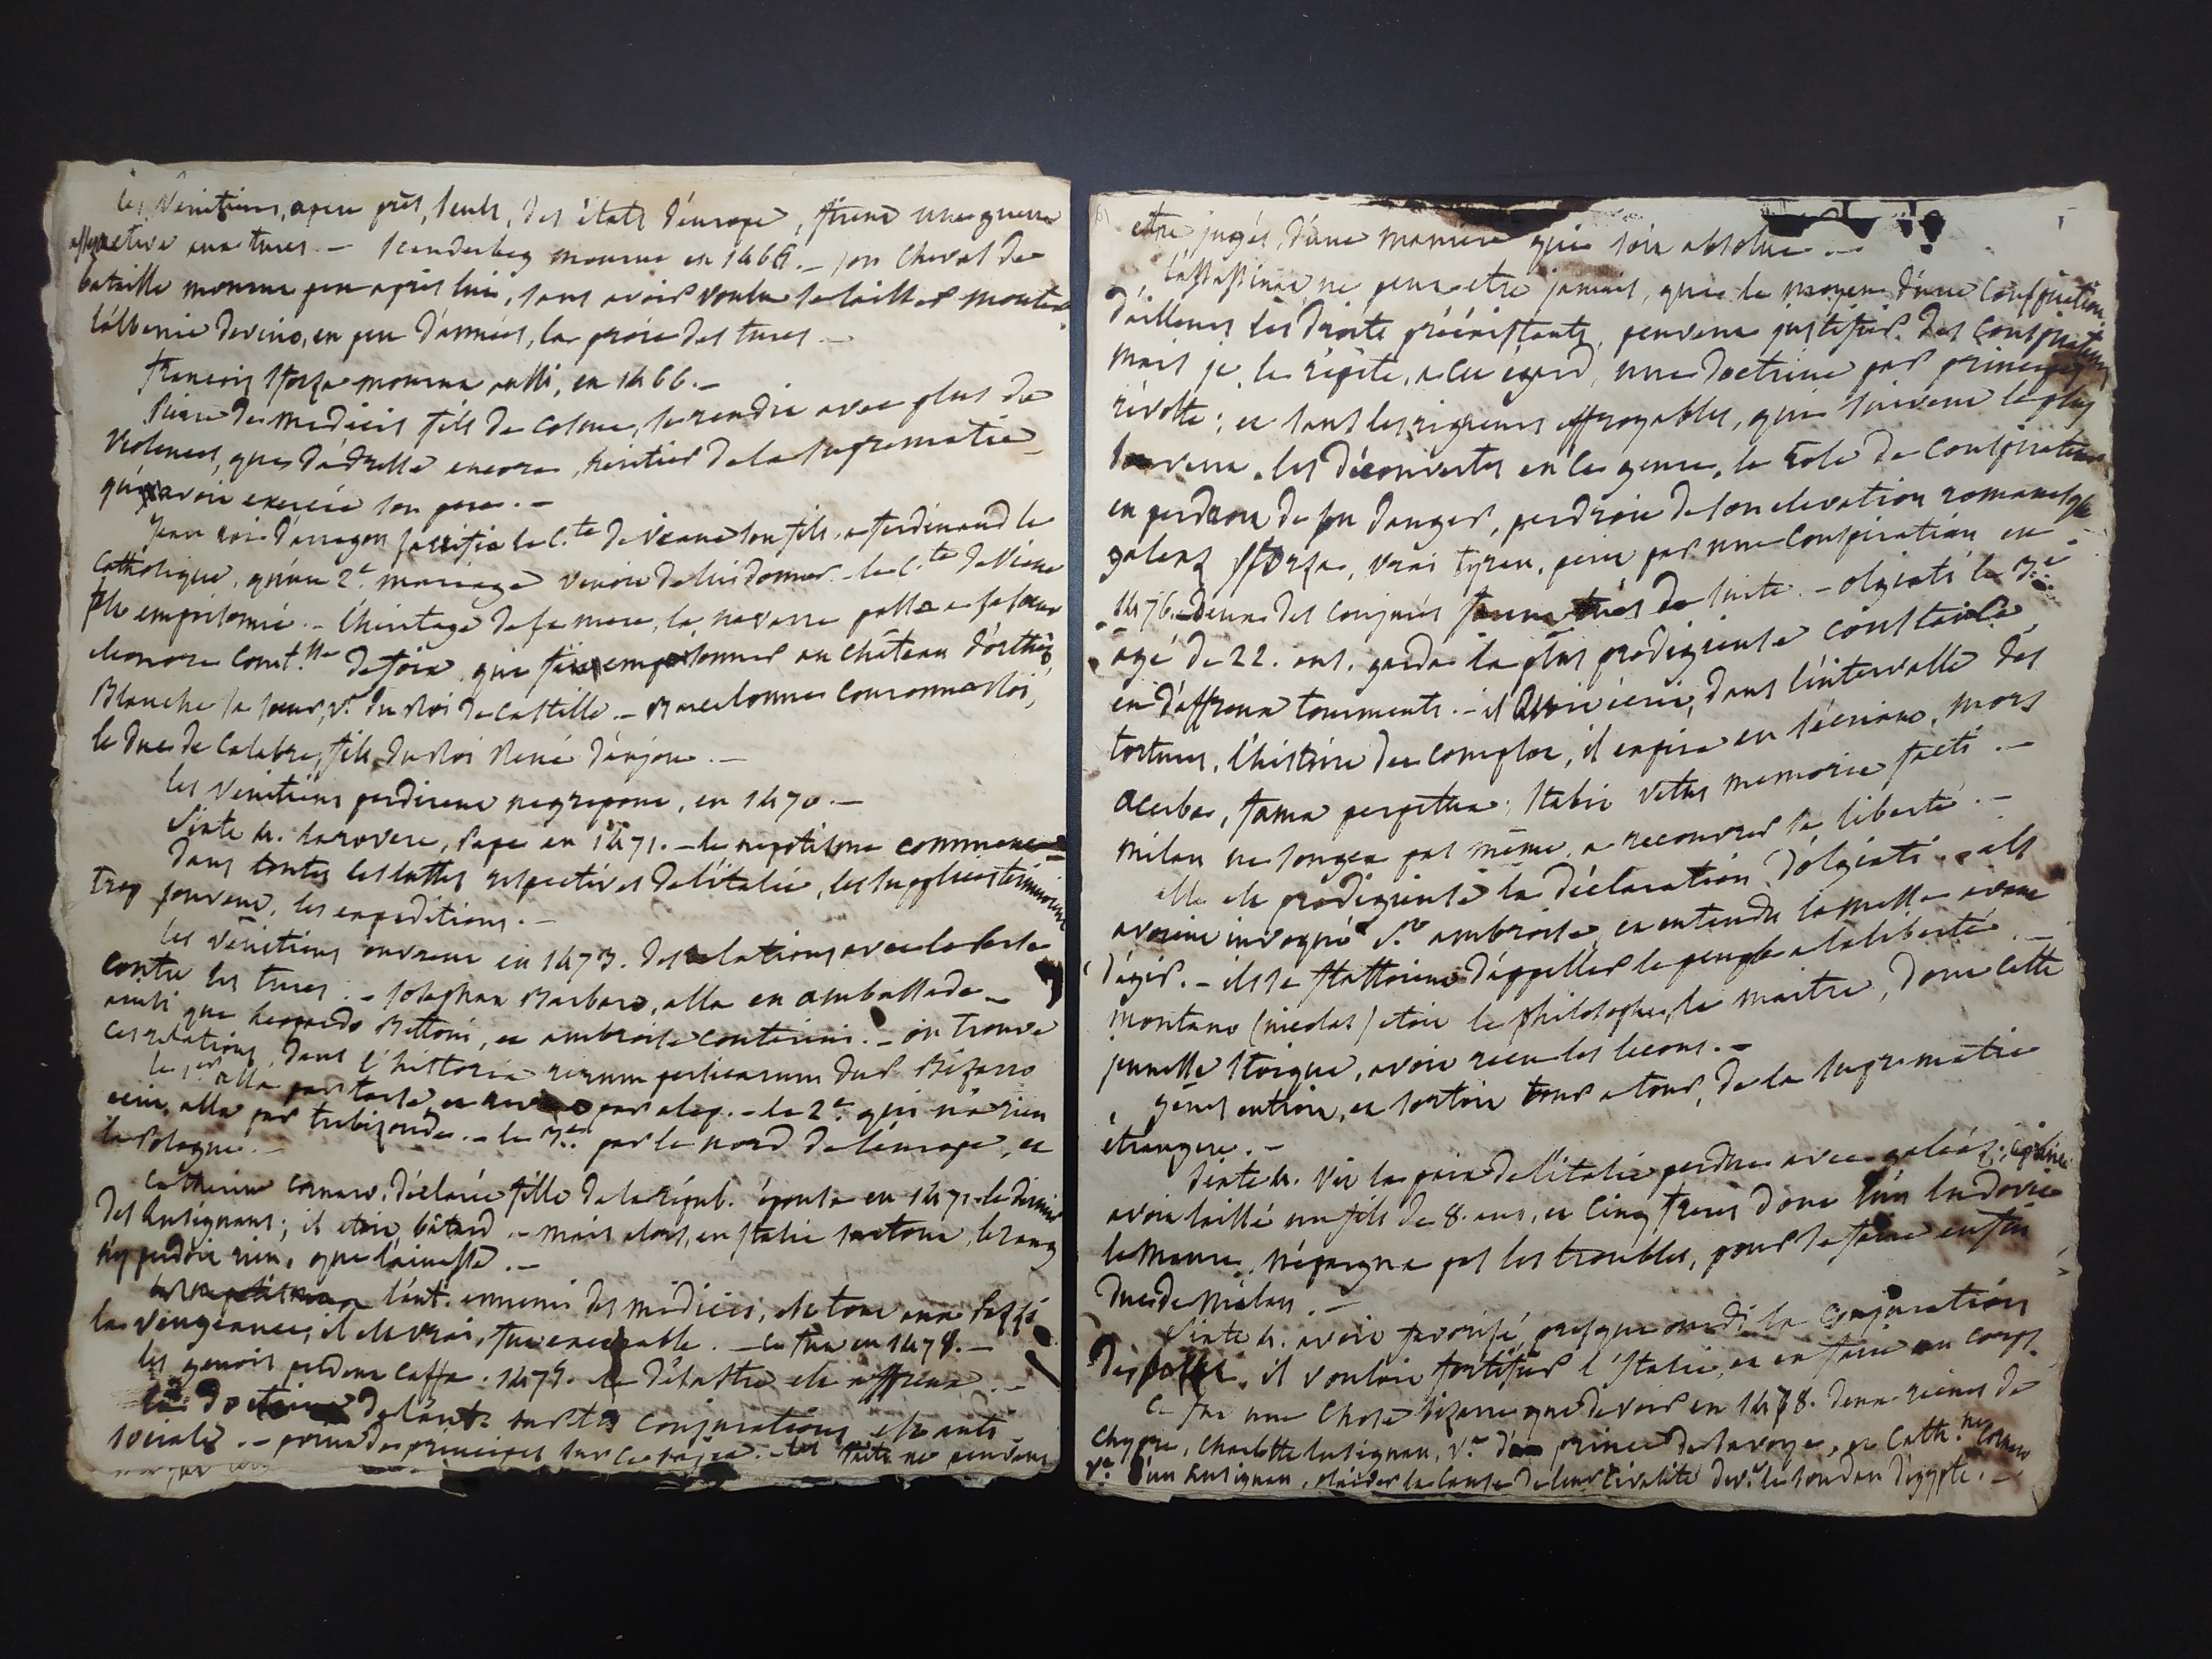 les Vénitiens, apeu près, seuls, des états d'europe, firent une guerre
effective aux turcs. — Scanderbeg mourut en 1466. — son cheval de
bataille mourut peu après lui, sans avoir voulu se laisser monter.
l'albanie devint, en peu d'années, la proie des turcs. —
francois Sforza mourut aussi, en 1466. —
Pierre de medicis fils de Cosme, se rendit avec plus de
violence, que d'adresse encore, héritier de la supremacie
qu'avoit exercée son pere. —
Jean roi d'arragon sacrifia le C.te de Viane son fils, a ferdinand le
catholique, qu'un 2.e mariage venoit de lui donner. — le C.te de Viane
fut emprisonné. — l'héritage de sa mere, la navarre passa a sa soeur
eleonore Comt.sse de foix, qui fit empoisonner au château d'orthez,
Blanche sa soeur, v.e du Roi de Castille. — Barcelonne couronna Roi,
le duc de Calabre, fils du Roi René d'anjou. —
les Vénitiens perdirent negrepont, en 1470. —
Sixte 4. larovere, Pape en 1471. — le nepotisme commence
dans toutes les luttes respectives de l'italie, les supplices terminoient
trop souvent, les expeditions. —
les vénitiens ouvrent en 1473. des relations avec la Perse
contre les turcs. — Josaphat Barbaro, alla en ambassade —
ainsi que Leopardo Bettoni, et ambroise Contarini. — on trouve
ces relations, dans l'historia rerum persicarum du P. Bizarro
le 1.er alla par tarse et par alep. — le 2.e qui n'a rien
écrit, alla par trebizonde. — le 3.e par le nord de l'europe, et
la Pologne. —
Catherine Cornaro, déclarée fille de la répub. épousa en 1471. le dernier
des Lusignans; il etoit bâtard. — mais alors, en Italie surtout, le sang
n'y perdoit rien, que l'ainesse. —
l'aut. ennemi des médicis, est tout aux Pazzi
la vengeance, il est vrai, fut execrable. — ce fut en 1478. —
les genois perdent Caffa. 1475. le désastre est affreux. —
la doctrine de l'aut. sur les conjurations est anti
sociale. — point de principes sur ce sujet. les faits ne peuvent
etre jugés, d'une maniere qui soit absolue. —
l'assassinat ne peut etre jamais, que le moyen d'une conspiration.
d'ailleurs les droits préexistants, peuvent justifier des conspirateurs
mais je le répète, a cet égard, une doctrine par principes
révolte; et sans les rigueurs effroyables, qui suivent le plus
souvent, les découvertes en ce genre, le role de conspirateur
en perdant de son danger, perdroit de son elevation romanesque
galeaz Sforza, vrai tyran, périt par une conspiration en
1476. deux des conjurés furent tués de suite. — olgiati le 3.e
agé de 22. ans, garda la plus prodigieuse constance,
en d'affreux tourments. — il avoit écrit, dans l'intervalle des
tortures, l'histoire du complot, il expira en s'écriant, mors
acerba, fama perpetua; stabit vetus memoria facti. —
milan ne songea pas même, a recouvrer sa liberté. —
elle est prodigieuse la déclaration d'olgiati. ils
avoient invoqué S.t ambroise, et entendu la messe avant
d'agir. — ils se flattoient d'appeller le peuple a la liberté. —
montano (nicolas) etoit le philosophe, le maitre, dont cette
jeunesse stoique, avoit recu les lecons. —
gênes entroit, et sortoit tour a tour, de la supremacie
étrangere. —
Sixte 4. vit la paix de l'italie perdue avec galéaz;
avoit laissé un fils de 8. ans, et cinq freres dont l'un ludovic
le Maure, n'épargna pas les troubles, pour se faire enfin
duc de Milan. —
Sixte 4. avoit favorisé, presque ourdi la conjuration
des pazzi. il vouloit fortifier l'Italie, et en faire un corps.
ce fut une chose bizarre que de voir en 1478. deux reines de
Chypre, Charlotte Lusignan, v.e d'un prince de Savoye, et Cath.ne Cornaro
v.e d'un Lusignan, plaider la cause de leur rivalité dev.t le soudan d'égypte. —